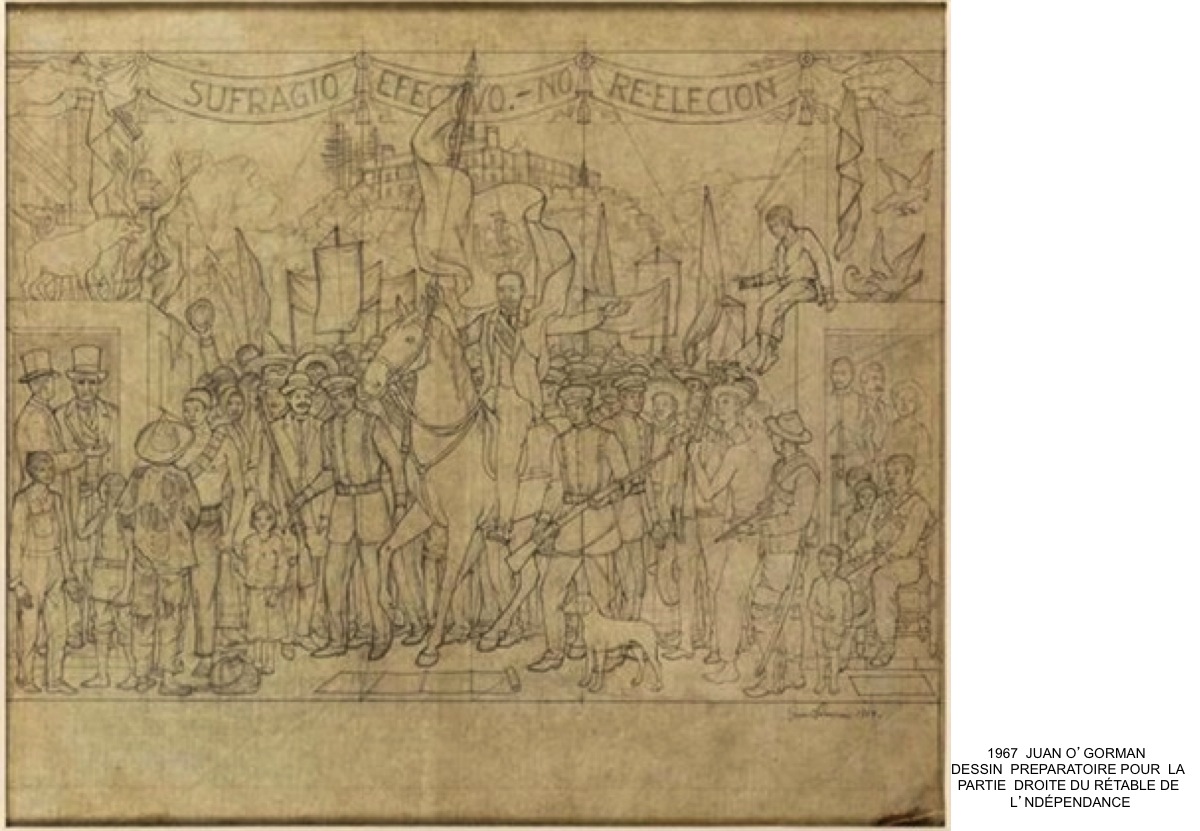 SUFRAGIO EFECTIVO.-NO RE-ELECION
1967 JUAN O' GORMAN
DESSIN PREPARATOIRE POUR LA
PARTIE DROITE DU RÉTABLE DE
L' NDÉPENDANCE